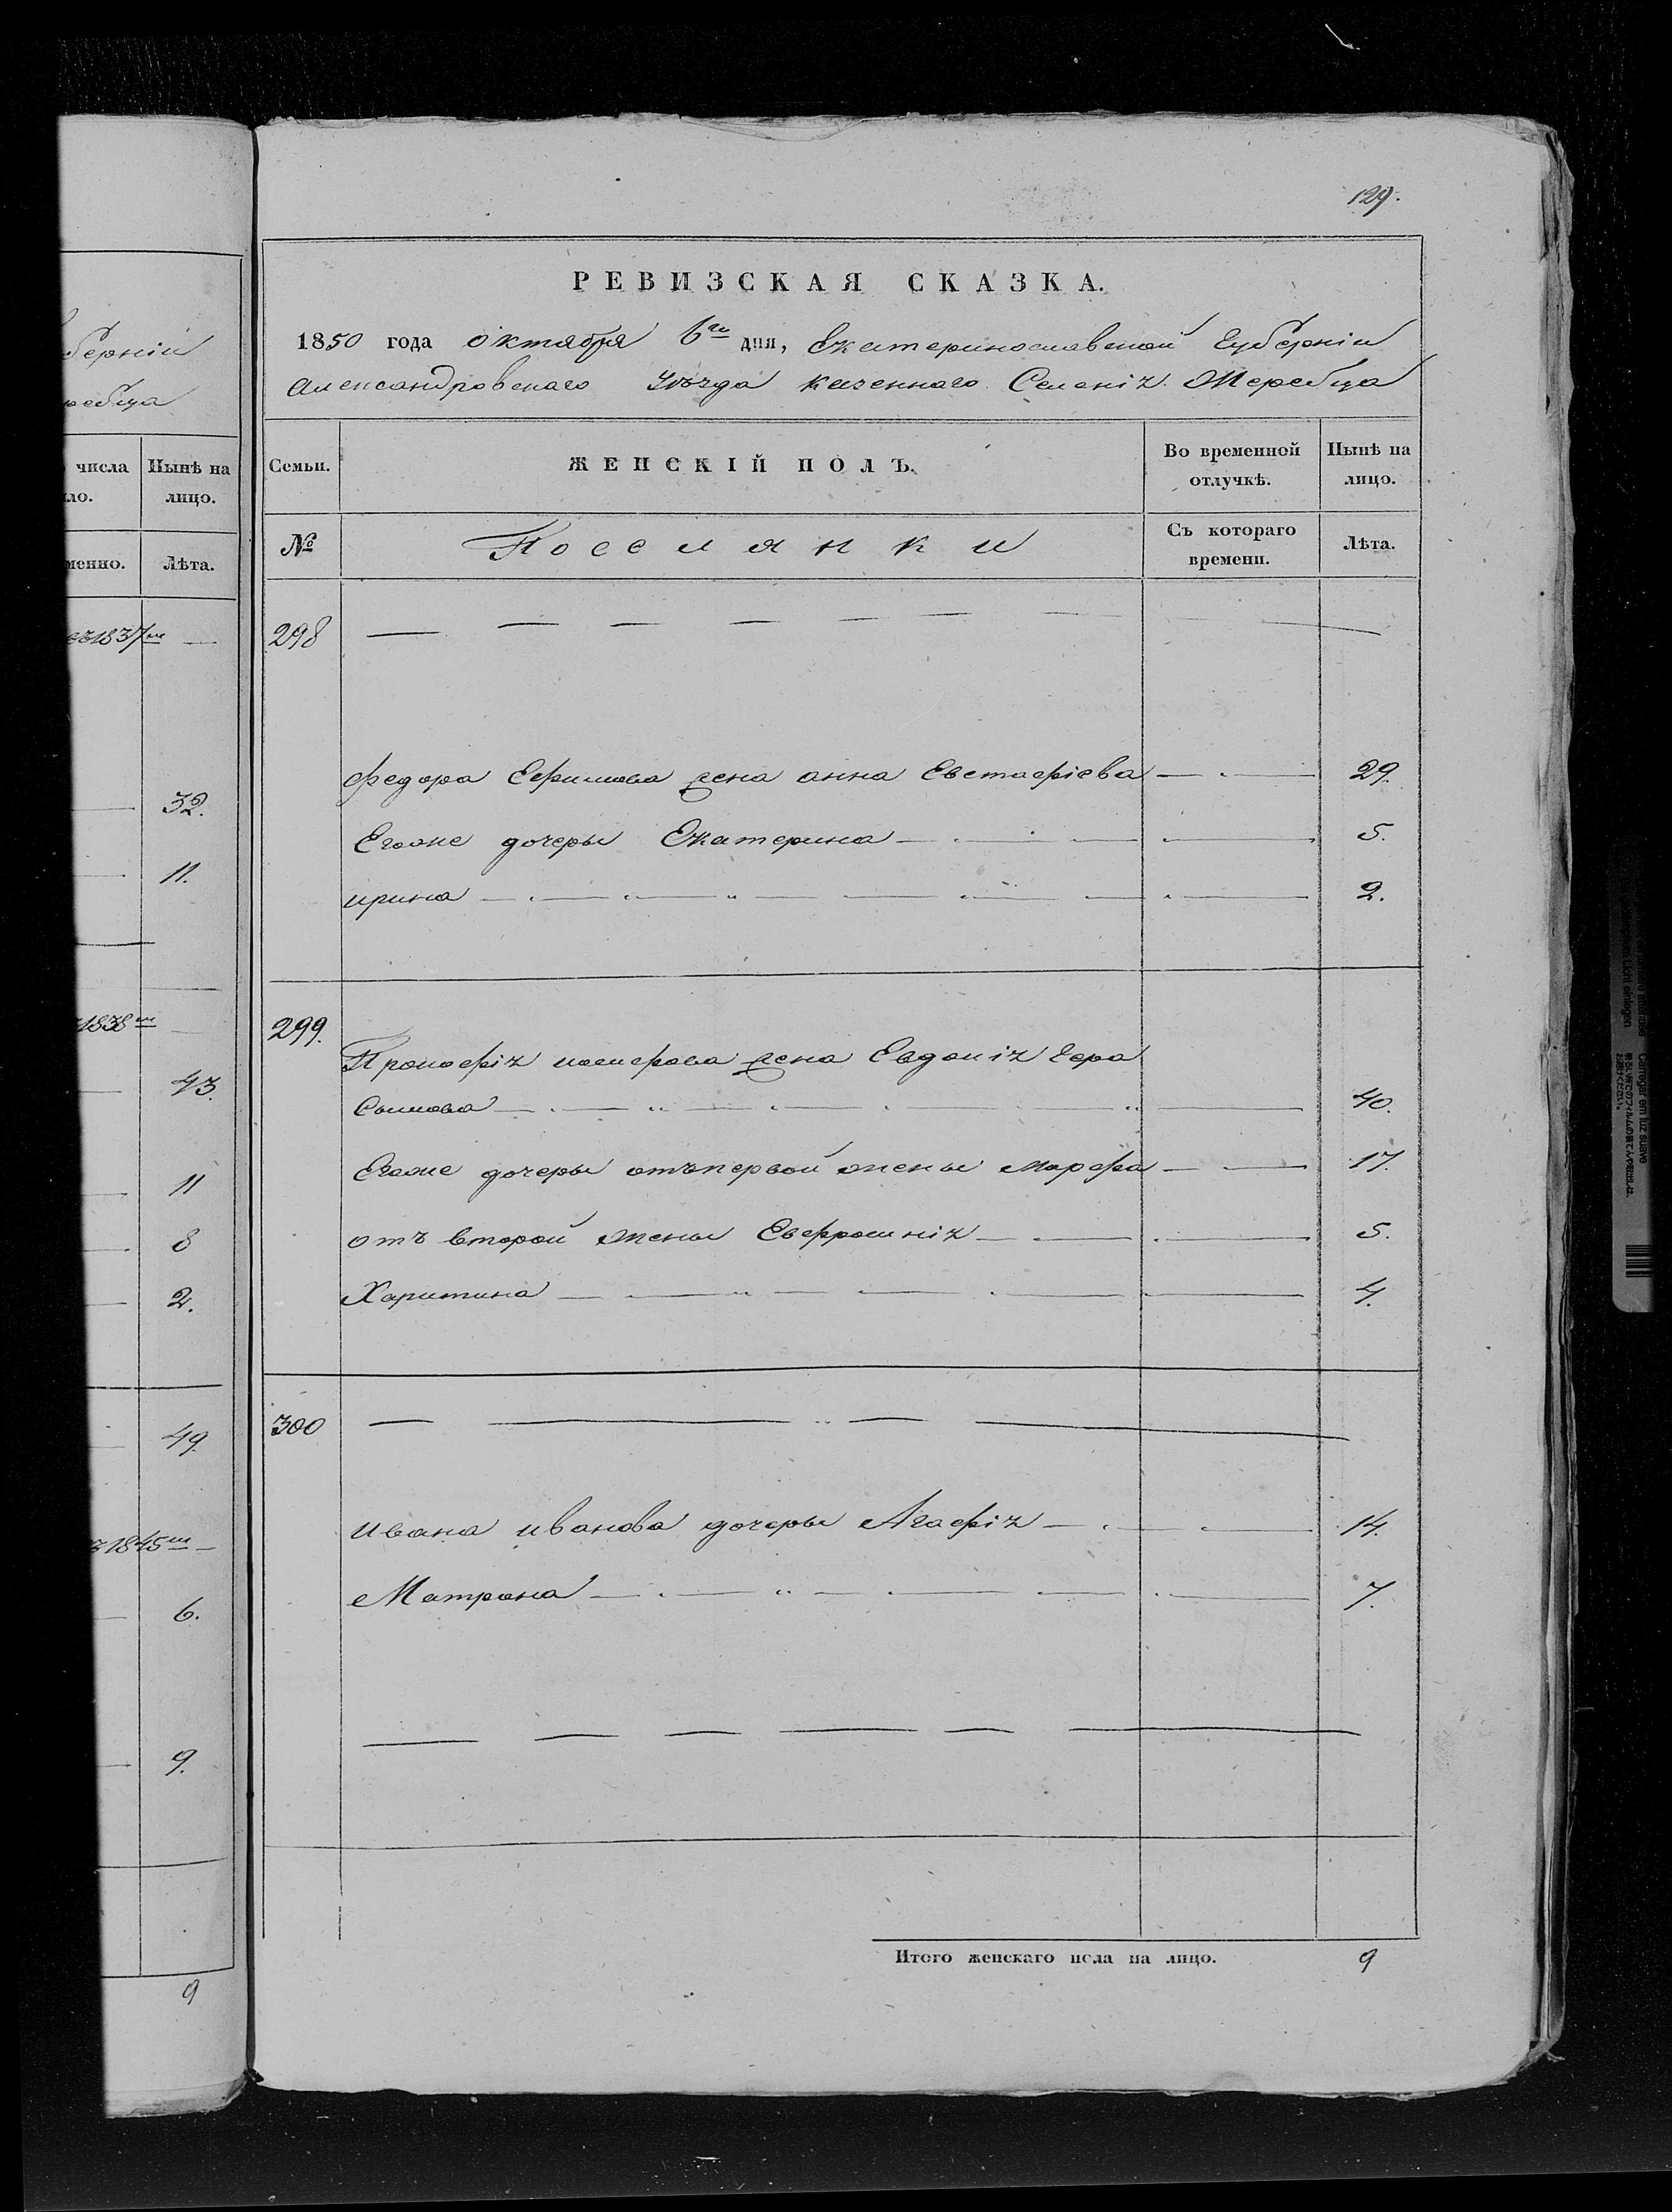 129.
РЕВИЗСКАЯ СКАЗКА.
1850 года октября 6го дня, Екатеринославской Губерніи
Александровскаго Уѣзда казеннаго Селенія Жеребца
берніи
ребца
числа Нынѣ на
ло. лицо.
менно. Лѣта.
Семьи. ЖЕНСКІЙ ПОЛЪ. Во временной отлучкѣ. Нынѣ на лицо.
№ Поселянки Съ котораго времени. Лѣта.
1837м
32.
11.
1838м
43.
11
8
2.
49.
1845м
6.
9.
9
298
Федора Ефимова жена анна Евстафіева 29.
Егоже дочеры Екатерина 5.
ирина 2.
299.
Прокофія жена Евдокія Гера
симова 40.
Егоже дочеры отъпервой жены марфа 17.
отъ второй жены Евфросинія 5.
Харитина 4.
300
ивана иванова дочеры Агафія 14.
Матрона 7.
Итого женскаго пола на лицо. 9